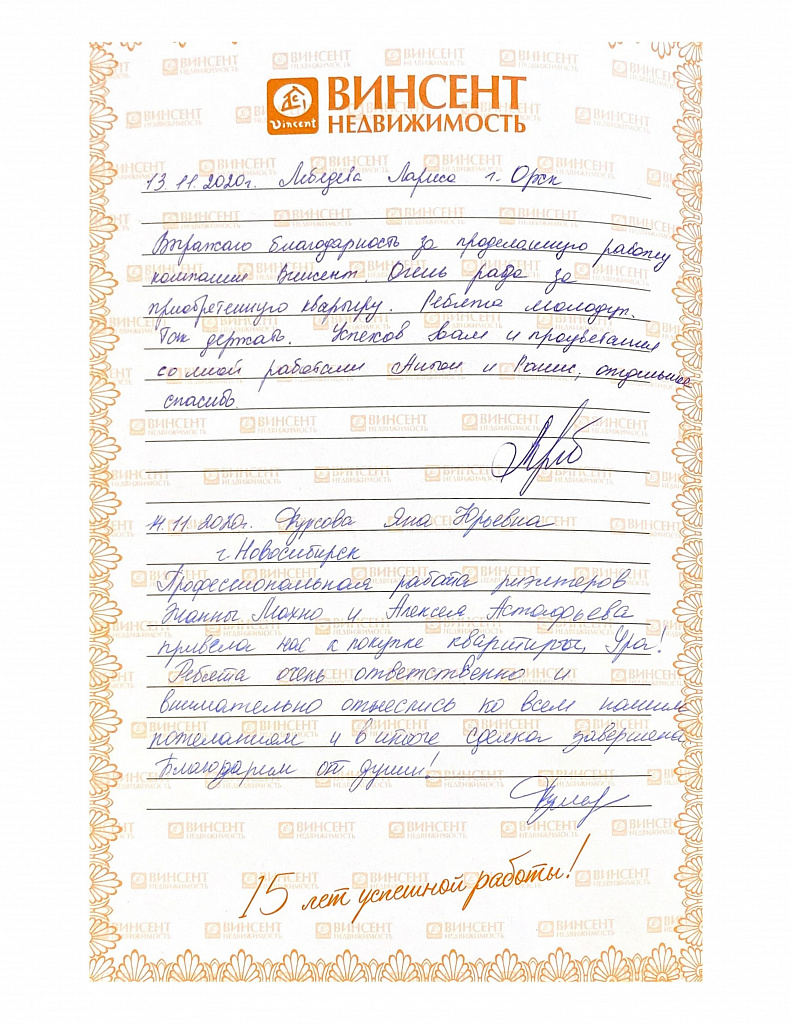 ВИНСЕНТ
НЕДВИЖИМОСТЬ
Vincent
13.11.2020г. Лебедева Лариса г. Орск
Выражаю благодарность за проделанную работу
компании Винсент. Очень рада за
приобретенную квартиру. Ребята молодцы.
Так держать. Успехов вам и процветания
со мной работали Антон и Ранис, отдельное
спасибо.
14.11.2020г. Фурсова Яна Юрьевна
г. Новосибирск
Профессиональная работа риэлтеров
Жанны Махно и Алексея Астафьева
привела нас к покупке квартиры, Ура!
Ребята очень ответственно и
внимательно отнеслись ко всем нашим
пожеланием и в итоге сделка завершена
Благодарим от души!
15 лет успешной работы!